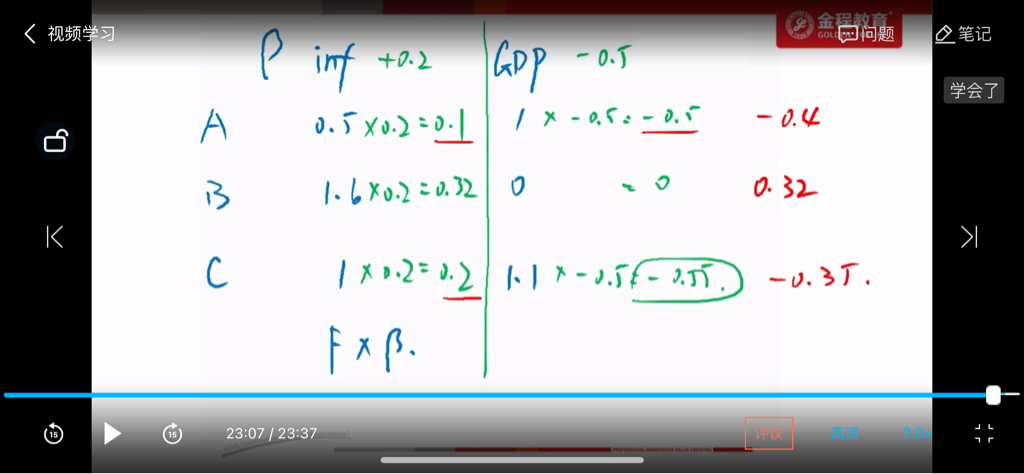 视频学习
金程教育
问题
笔记
学会了
β inf +0.2 GDP -0.5
A 0.5 ×0.2 = 0.1 1 × -0.5 = -0.5 -0.4
B 1.6 ×0.2 = 0.32 0 = 0 0.32
C 1 ×0.2 = 0.2 1.1 × -0.5 = -0.55. -0.35.
F × β.
15
15
23:07 / 23:37
评议
高清
2.0x